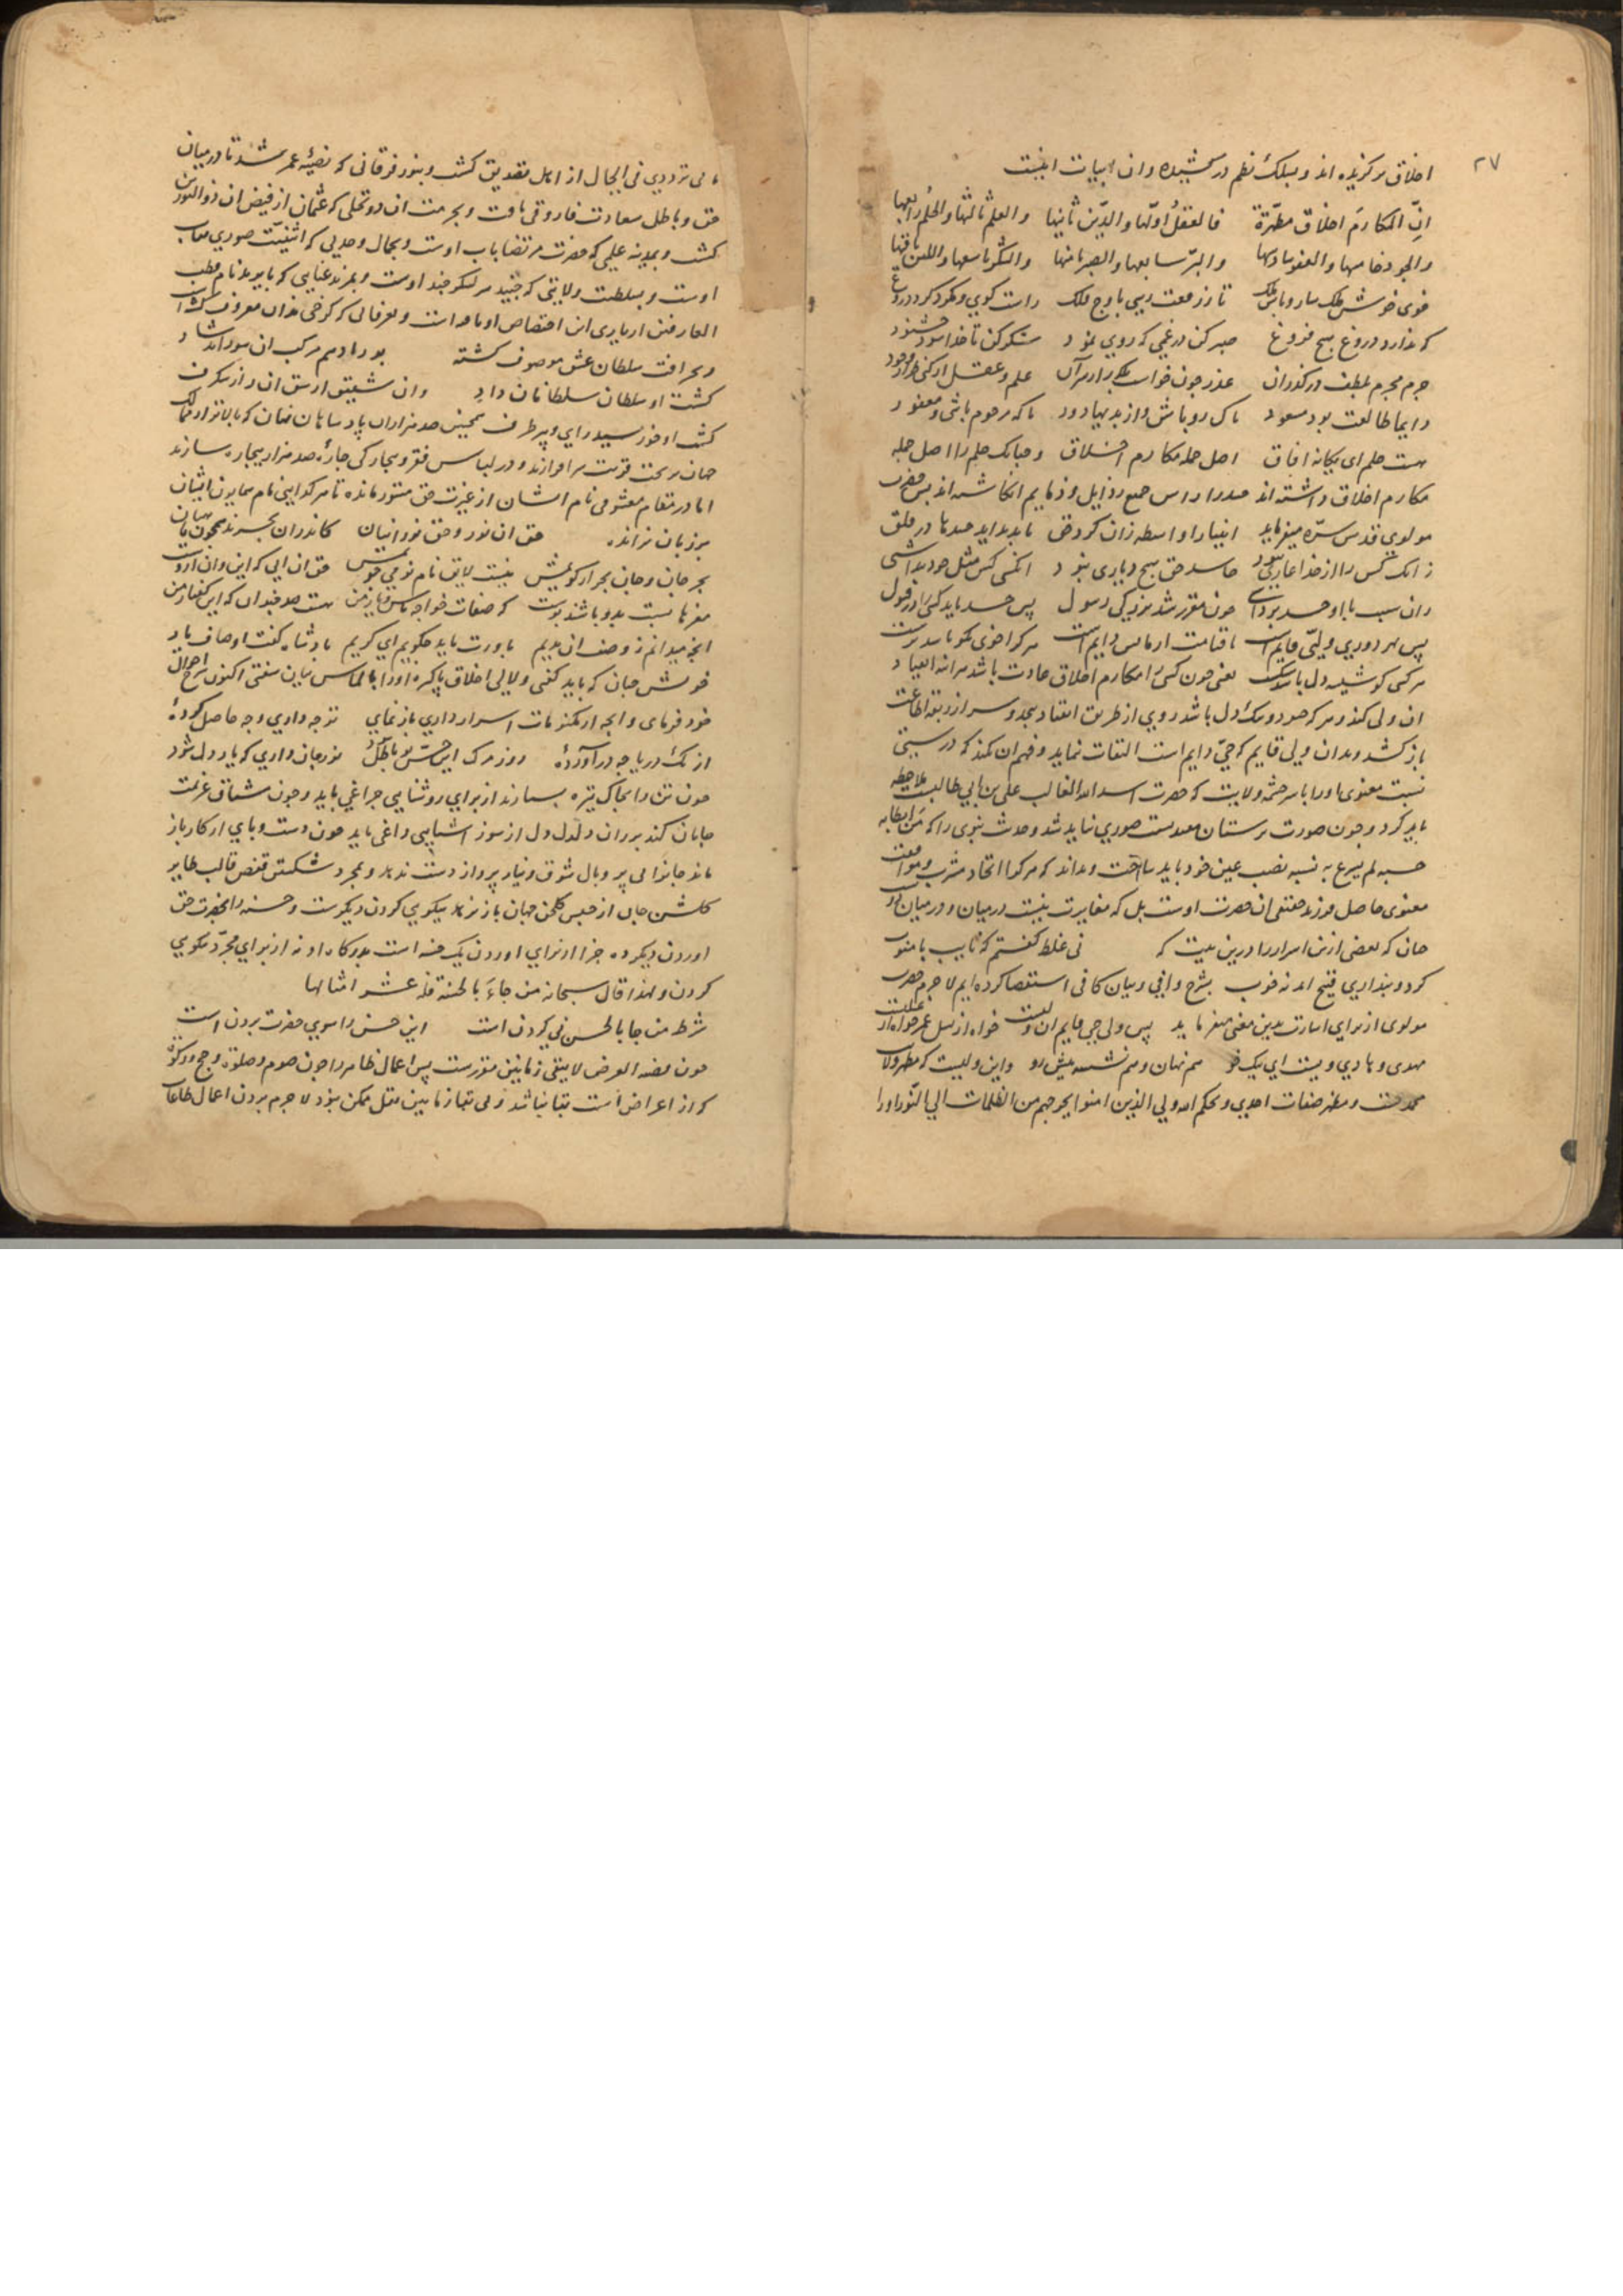 ۲۷
اخلاق برگزیده اند و بسلک نظم درکشیده وان ابیات اینست
انّ المکارم اخلاق مطهّرة فالعقل اوّلها والدّین ثانیها والعلم ثالثها والحلم رابعها
والجود خامسها والعفو سادسها والبرّ سابعها والصبر ثامنها والشکر تاسعها واللین باقیها
خوی خوش تا ز رفعت باوج ملک راست کوی و مکرد کرد دروغ
که ندارد دروغ هیچ فروغ صبر کن در غمی که روی نمود شکر کن تا خدا شود خشنود
جرم مجرم بلطف درکذران عذر چون خواست علم و عقل
دایما طالعت بود مسعود پاک رو باش واز بد بهادور تا که مرحوم باشی و مغفور
هست حلم ای یکانه افاق اصل جمله مکارم اخلاق وچنانک حلم را اصل جمله
مکارم اخلاق داشته اند حسد را راس جمیع رذایل و ذمایم انکاشته اند پس حضرت
مولوی قدس سرّه میفرماید انبیا را واسطه زان کرد حق تا بدید اید حسدها در قلق
زانک کس را از خدا عاری نبود حاسد حق هیچ دیاری نبود انکسی کش مثل خود پنداشتی
زان سبب با او حسد برداشتی چون مقرر شد بزرکی رسول پس حسد ناید کسی را از قبول
پس بهر دوری ولیّی قایم است تا قیامت ازمایش دایم است هر کرا خوی نکو باشد برست
هر کسی کو شیشه دل باشد شکست یعنی چون کسی را مکارم اخلاق عادت باشد هرانه انقیاد
ان ولی کند و هر که حسود و تنک دل باشد روی از طریق انقیاد بپیچد و سر از ربقه اطاعت
باز کشد و بدان ولی قایم که حیّ دایم است التفات نماید و فهم ان نکند که در
نسبت معنوی او را با سرچشمه ولایت که حضرت اسد الله الغالب علی بن ابی طالب است ملاحظه
باید کرد و چون صورت پرستان صوری نباید شد و حدیث نبوی را که من ابطا به
حسبه لم یسرع به نسبه نصب عین خود باید ساخت و بداند که هر کرا اتحاد مشرب و موافقت
معنوی حاصل فرزند حقیقی ان حضرت اوست بل که مغایرت نیست درمیان
چنان که بعضی ازین اسرار را درین بیت که نی غلط کفتم که نایب با منوب
کر دو پنداری قبیح اید نه خوب بشرح وافی و بیان کافی استقصا کرده ایم لاجرم حضرت
مولوی از برای اشارت بدین معنی میفرماید پس ولی حی قایم ان ولیست خواه از نسل عمر خواه از علیست
مهدی و هادی ویست ای نیک خو هم نهان و هم نشسته پیش رو واین ولیست که مظهر ولایت
محمدیست و مظهر صفات احدی و بحکم الله ولی الذین امنوا یخرجهم من الظلمات الی النّور او را
بی تردد فی الحال از اهل تصدیق کشت و بنور فرقانی که نصیبه عمر شد تا درمیان
حق و باطل سعادت فاروقی یافت و بحرمت ان دو تجلی که عثمان از فیض ان ذوالنورین
کشت و بمدینه علمی که حضرت مرتضا باب اوست و بجمال وحدتی که اثنینیّت صوری نقاب
اوست و بسلطنت ولایتی که جنید سر لشکر جند اوست و بمزید عنایتی که بایزید نام قطب
العارفین از این اختصاص او یافته است و بعرفانی که کرخی بدان معروف کشته است
کشت او سلطان سلطانان داد وان شقیق از شق ان راه شکرف
کشت او خورشید رای و تیز طرف همچنین صد هزاران پادشاهان نهان که بالاتر از ممالک
جهان بر تخت قربت سر افرازند و در لباس فقر و بیچارکی چاره صد هزار بیچاره سازند
اما در مقام معشوقی نام ایشان از غیرت حق مستور مانده تا هر کدایی نام همایون ایشان
بر زبان نراند حق ان نور و حق نورانیان کاندران بحرند همچون ماهیان
بحر جان و جان بحر ار کویمش نیست لایق نام نو می جویمش حق ان انی که این و ان ازوست
مغزها نسبت بدو باشند پوست که صفات خواجه تاش و یار من هست صد چندان که این کفتار من
انچه میدانم ز وصف ان ندیم باورت ناید چکویم ای کریم پادشاه کفت اوصاف یار
خویش چنان که باید کفتی و لالی اخلاق پاکیزه او را بالماس بیان سفتی اکنون شرح احوال
خود فرمای و انچه از مکنونات اسرار داری باز نمای تو چه داری و چه حاصل کرده
از تک دریا چه در آورده روز مرک این حسّ تو باطل شود نور جان داری که یار دل شود
چون تن را بخاک تیره بسپارند از برای روشنایی چراغی باید و چون مشتاق عزیمت
جانان کند بر ران دلدل دل از سوز اشنایی داغی باید چون دست و پای از کار باز
ماند جانرا بی پر و بال شوق و نیاز پرواز دست ندهد و بمجرد شکستن قفص قالب طایر
کلشن جان از حبس کلخن جهان باز نرهد نیکویی کردن دیکرست و حسنه را بحضرت حق
اوردن دیکر ده جزا از برای اوردن یک حسنه است بدرکاه او نه از برای مجرّد نکویی
کردن و لهذا قال سبحانه من جاءَ بالحسنة فله عشر امثالها
شرط من جا بالحسن نی کردن است این حسن را سوی حضرت بردن است
چون قضیه العرض لا یبقی زمانین مقررست پس اعمال ظاهر را چون صوم و صلوة و حج و زکوة
که از اعراض است بقا نباشد و بی بقاء زمانین نقل ممکن نبود لاجرم بردن اعمال طاعات